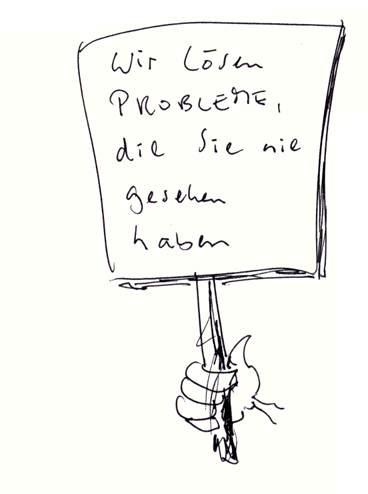 Wir Lösen
PROBLEME,
die Sie nie
gesehen
haben